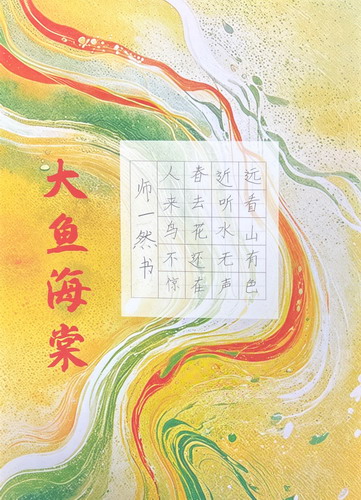 大鱼海棠
远看山有色
近听水无声
春去花还在
人来鸟不惊
师一然书